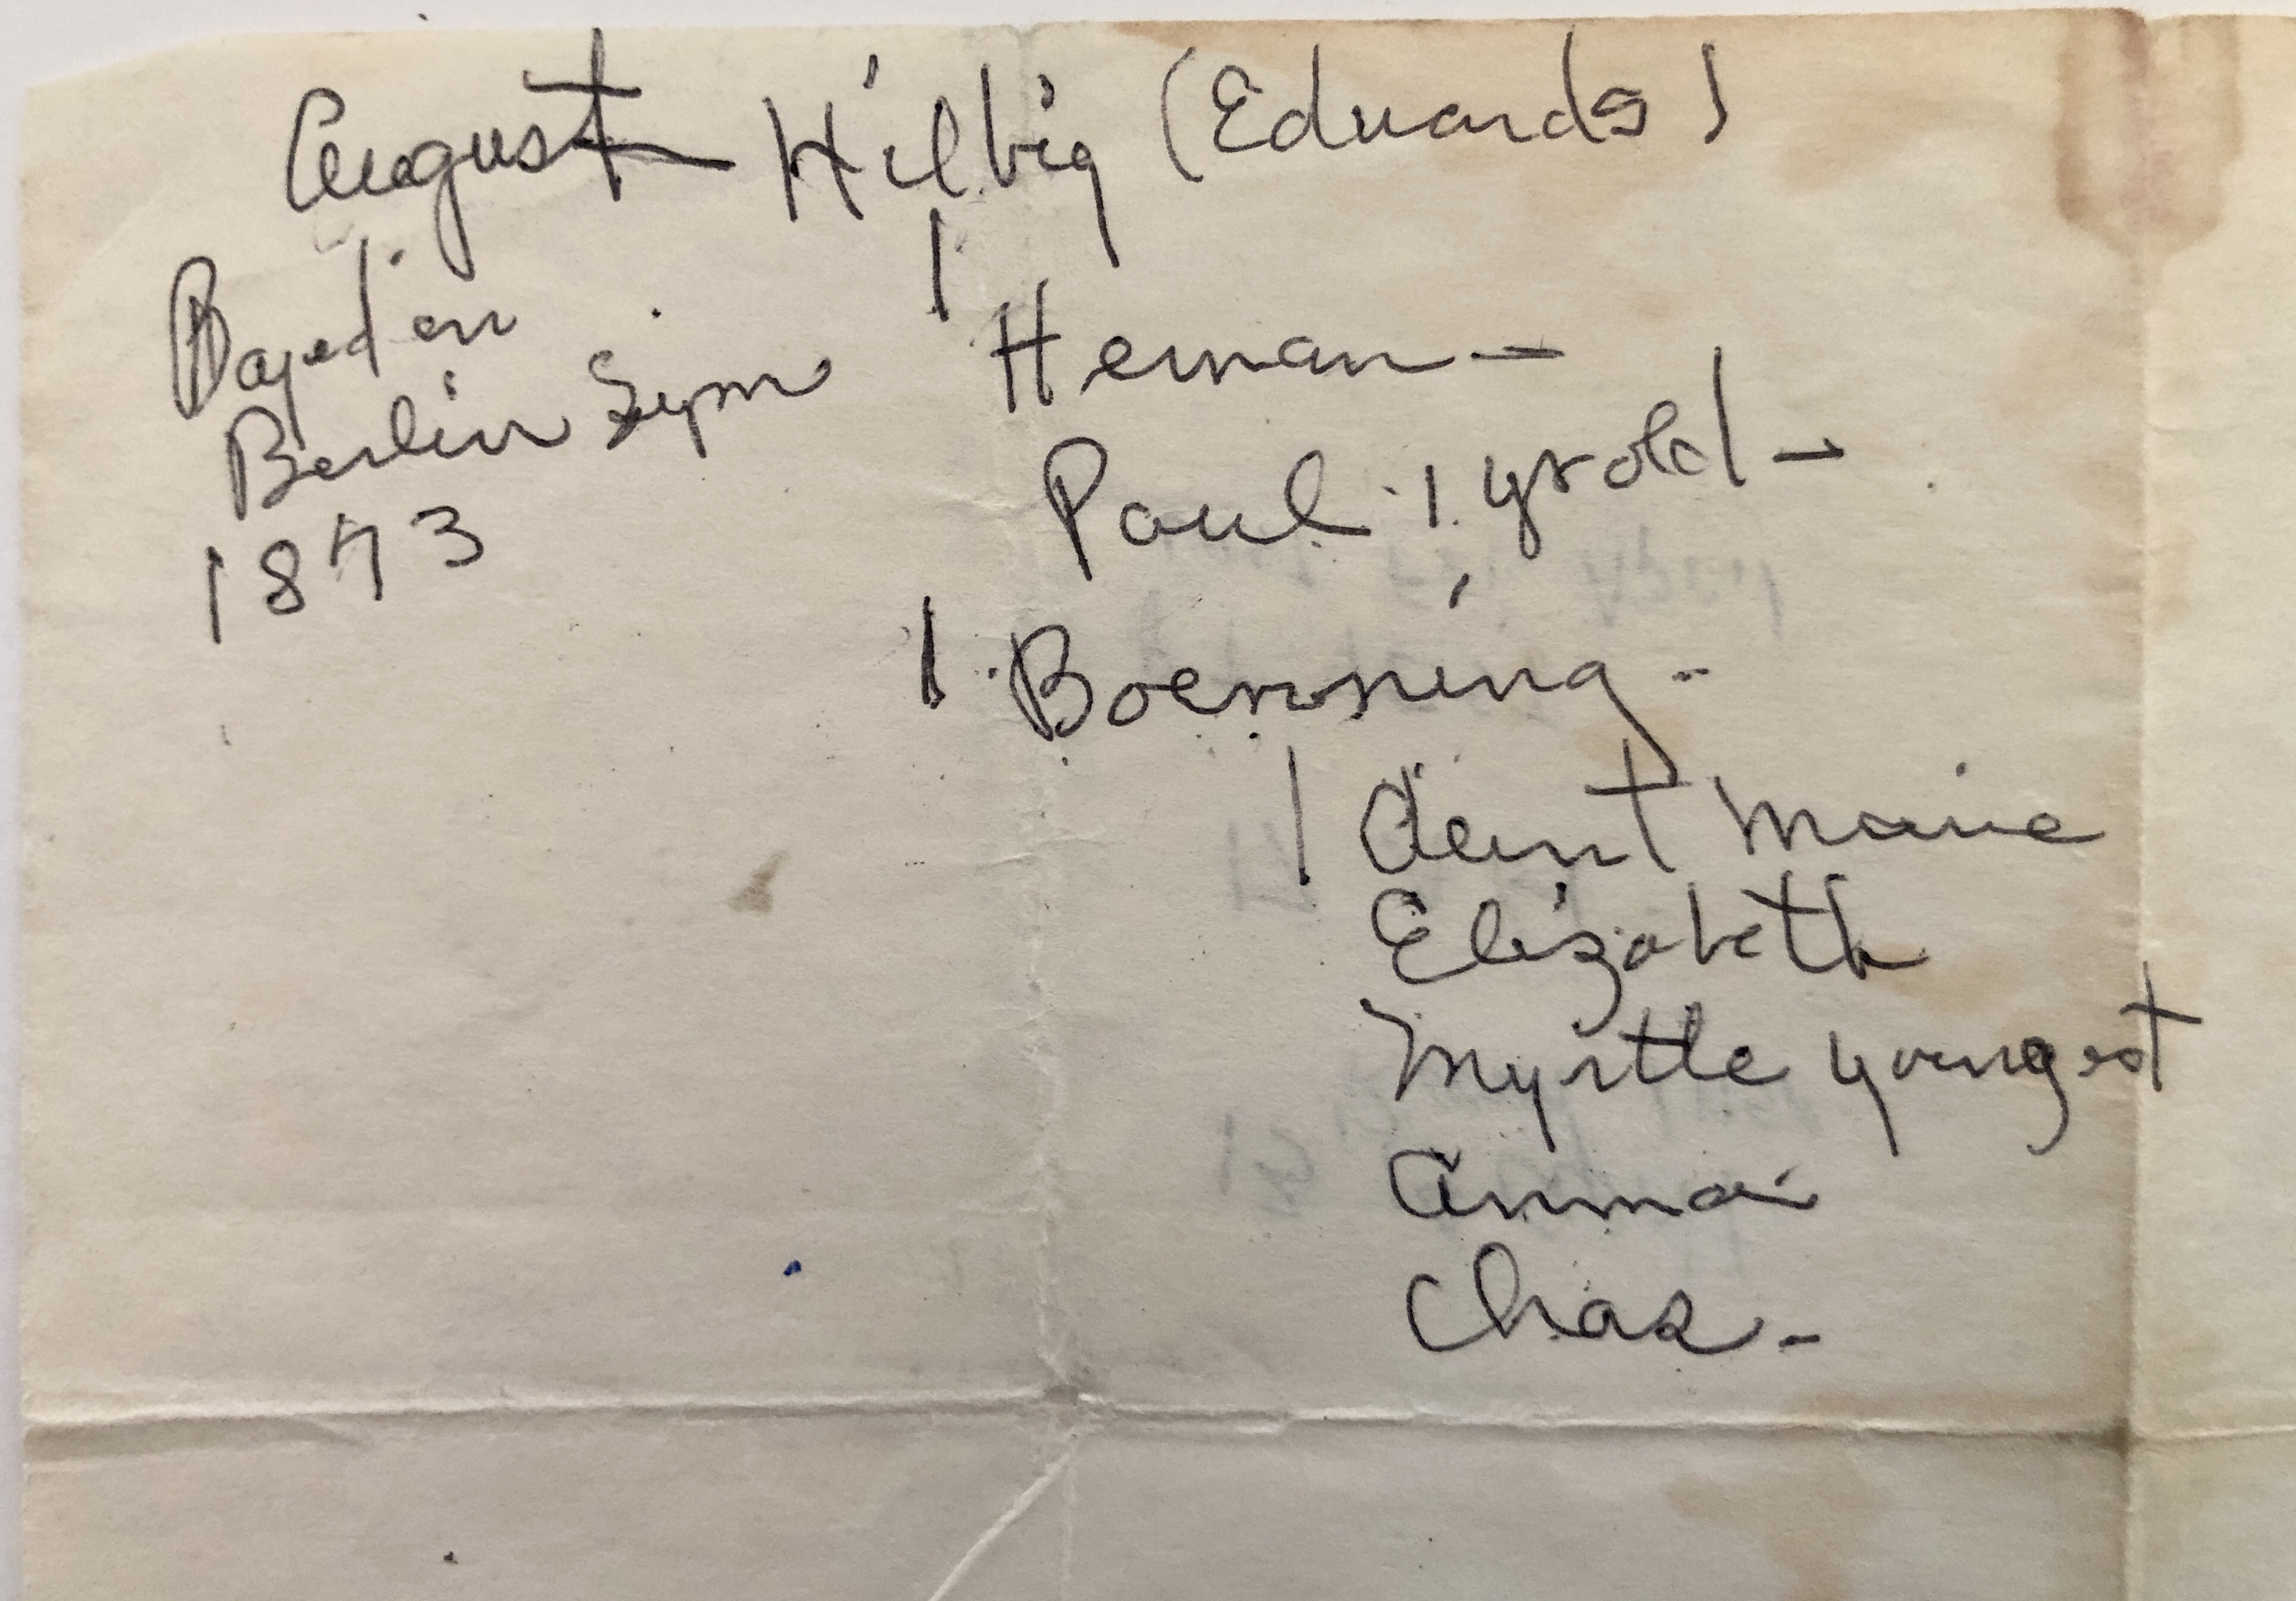 August Hilbig (Eduards)
Played on
Berlin Sym
1873
Herman -
Paul 1 yr old -
Boenning -
Aunt Marie
Elizabeth
Myrtle youngest
Anna
Chas -